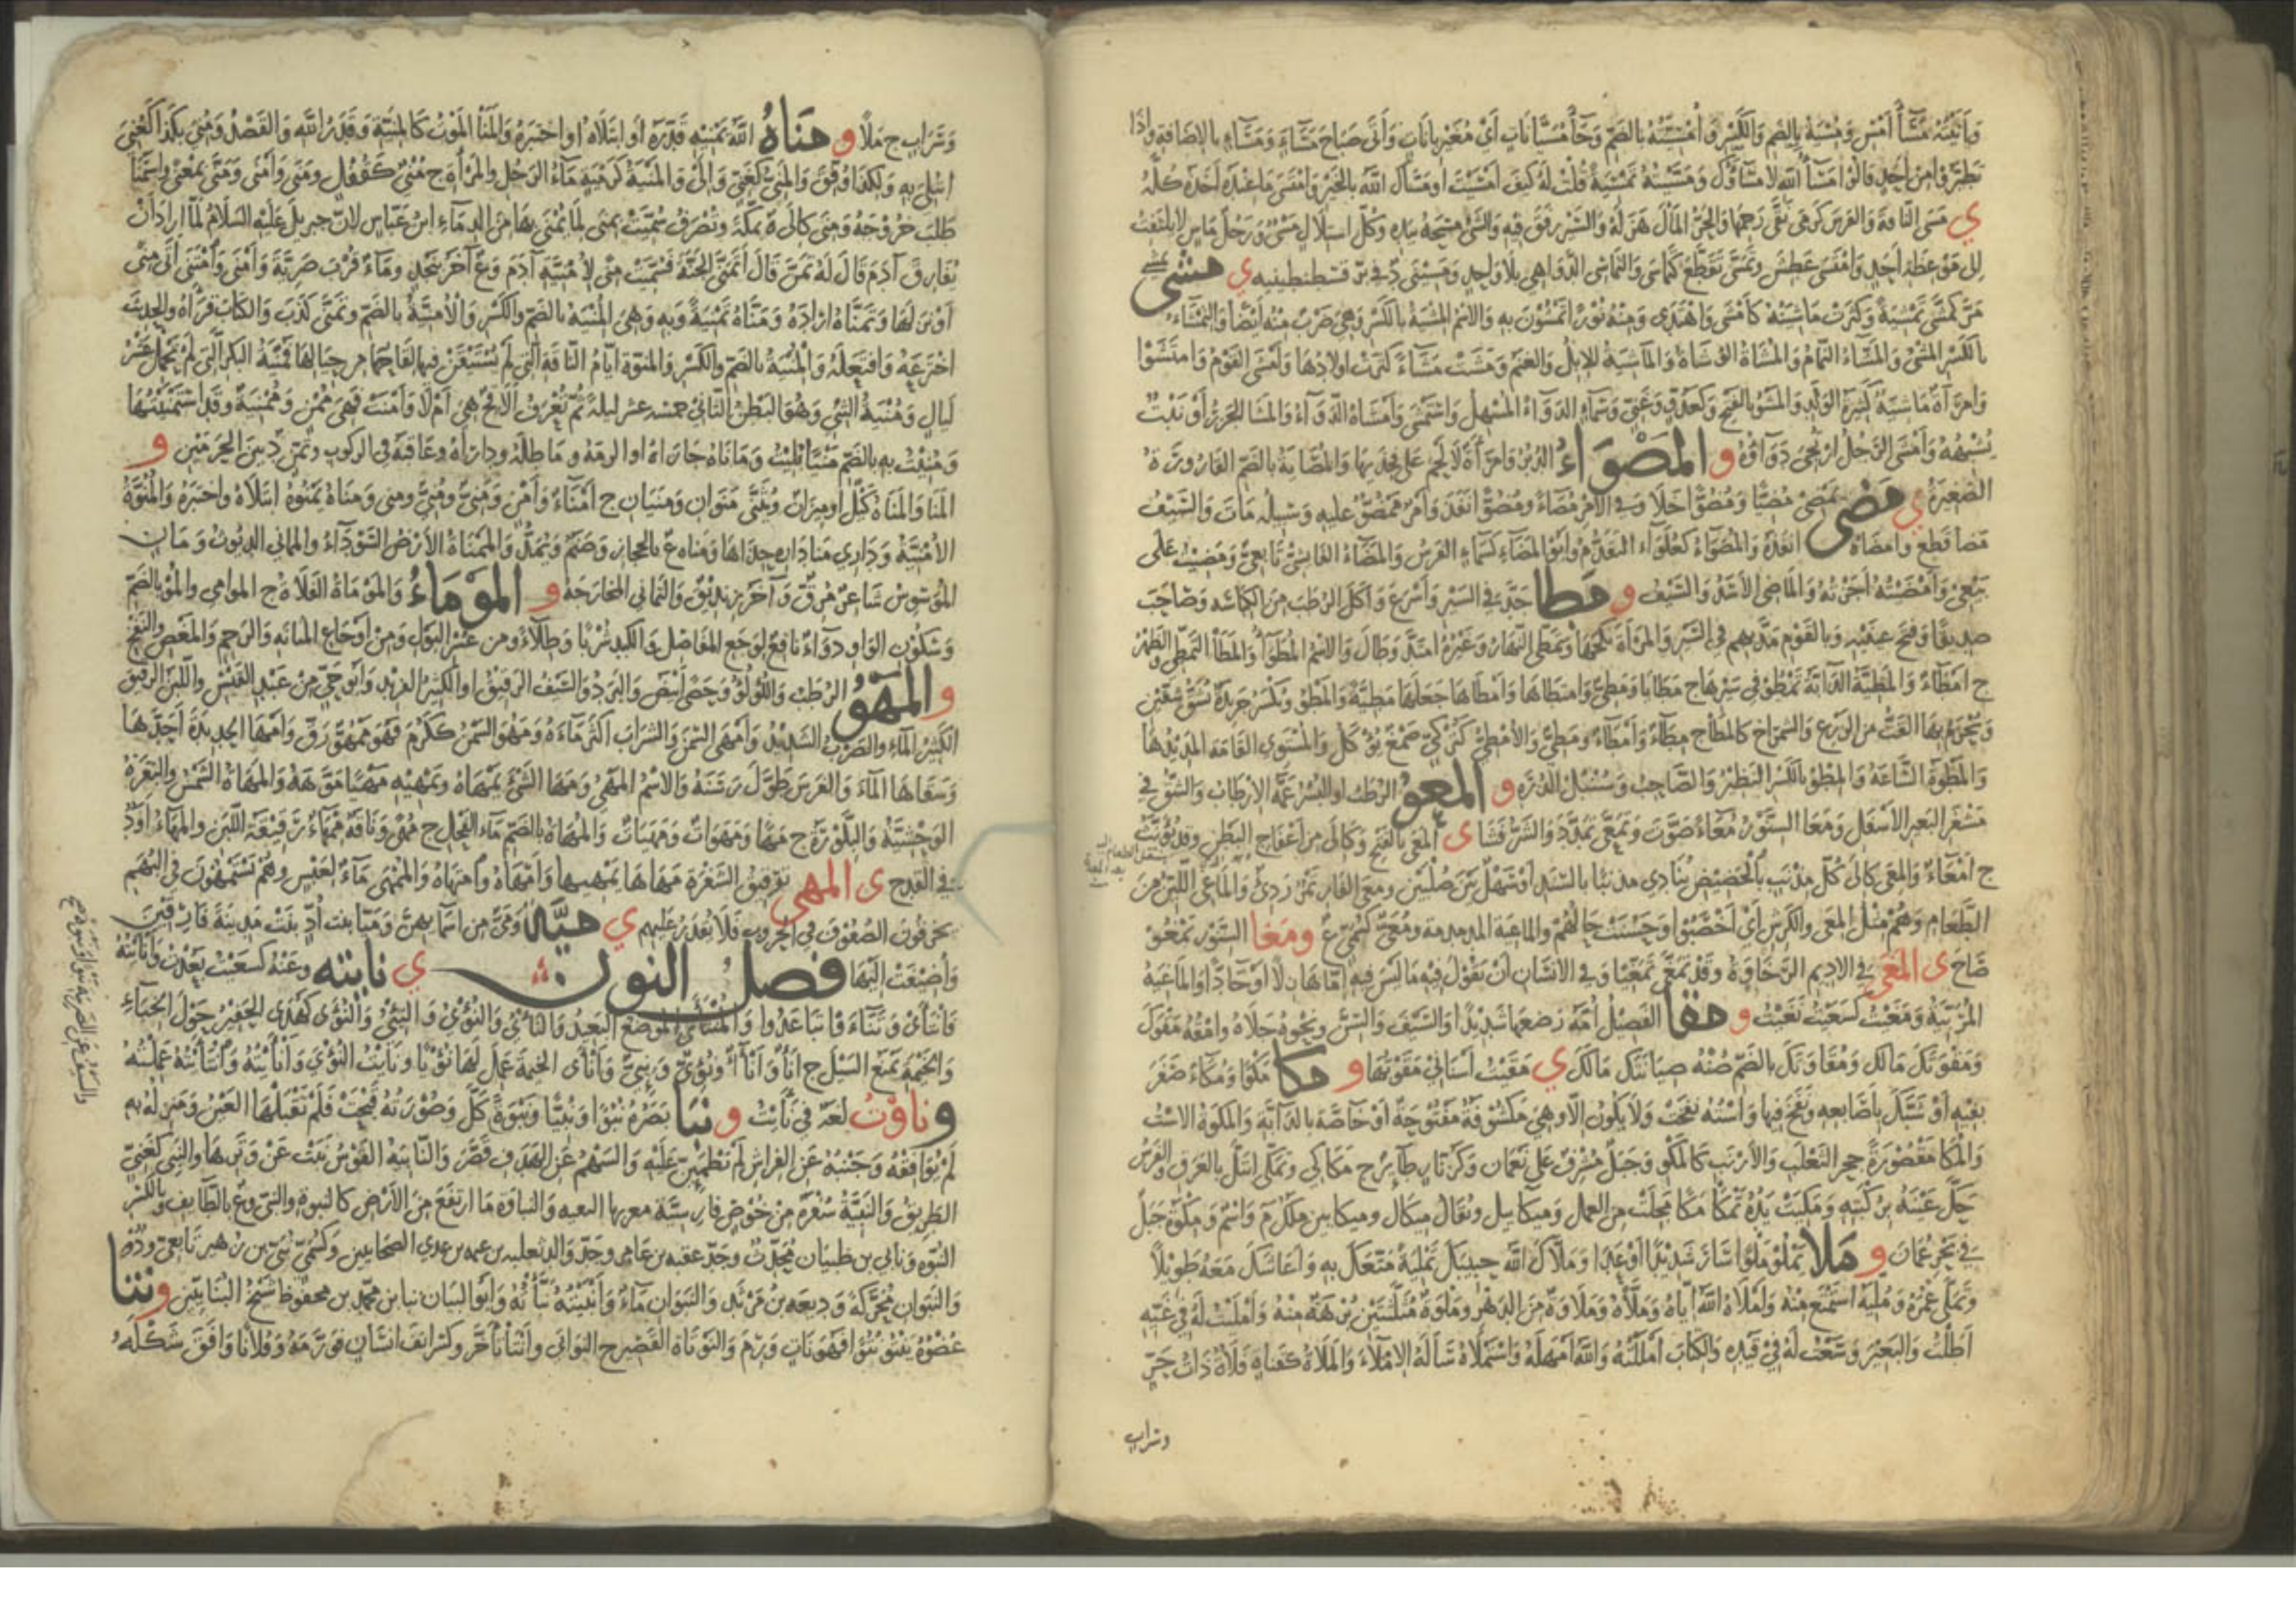 وَأَتَيْتُهُ مَسَاءَ أَمْسِ وَمُسْيَهُ بِالضَّمِّ وَالكَسْرِ وَأُمْسِيَّتَهُ بِالضَّمِّ وَجَاءَ مُسَيَّانَاتٍ أَيْ مُغَيْرِبَانَاتٍ وَأَتَى صَبَاحَ مَسَاءَ وَمَسَاءٍ بِالإِضَافَةِ وَإِذَا
تَطَيَّرُوا مِنْ أَحَدٍ قَالُوا مَسَاءُ اللهِ لَا مَسَاؤُكَ وَمَسَّيْتُهُ تَمْسِيَةً قُلْتُ لَهُ كَيْفَ أَمْسَيْتَ أَوْ مَسَّاكَ اللهُ بِالخَيْرِ وَامْتَسَى مَا عِنْدَهُ أَخَذَهُ كُلَّهُ
ي مَسَى النَّاقَةَ وَالفَرَسَ كَرَمَى نَقَّى رَحِمَهَا وَالحَرُّ المَالَ هَزَلَهُ وَالسَّيْرَ رَفَقَ فِيهِ وَالشَّيْءَ مَسَحَهُ بِيَدِهِ وَكُلُّ اسْتِلَالٍ مَسْيٌ وَرَجُلٌ مَاسٍ لَا يَلْتَفِتُ
إِلَى مَوْعِظَةِ أَحَدٍ وَامْتَسَى عَطِشَ وَتَمَسَّى تَقَطَّعَ كَتَمَاسَى وَالتَّمَاسِي الدَّوَاهِي بِلَا وَاحِدٍ وَمَسِينَى د قرب قسطنطينيه ي مشى يمشي
مَرَّ كَمَشَّى تَمْشِيَةً وَكَثُرَتْ مَاشِيَتُهُ كَأَمْشَى وَاهْتَدَى وَمِنْهُ نُورًا تَمْشُونَ بِهِ وَالاسْمُ المِشْيَةُ بِالكَسْرِ وَهِيَ ضَرْبٌ مِنْهُ أَيْضًا وَالتِّمْشَاءُ
بِالكَسْرِ المَشْيُ وَالمَشَّاءُ النَّمَّامُ وَالمُشَاةُ الوُشَاةُ وَالمَاشِيَةُ الإِبِلُ وَالغَنَمُ وَمَشَتْ مَشَاءً كَثُرَتْ أَوْلَادُهَا وَأَمْشَى القَوْمُ وَامْتَشَوْا
وَامْرَأَةٌ مَاشِيَةٌ كَثِيرَةُ الوَلَدِ وَالمَشْوُ بِالفَتْحِ وَكَعَدُوٍّ وَغَنِيٍّ وَسَمَاءٍ الدَّوَاءُ المُسْهِلُ وَاسْتَمْشَى وَأَمْشَاهُ الدَّوَاءُ وَالمَشَا الجَزَرُ أَوْ نَبْتٌ
يُشْبِهُهُ وَأَمْشَى الرَّجُلُ ارْتَجَى دَوَاؤُهُ و المَصْوَاءُ الدُّبُرُ وَامْرَأَةٌ لَا لَحْمَ عَلَى فَخِذَيْهَا وَالمُصَايَةُ بِالضَّمِّ القَارُورَةُ
الصَّغِيرَةُ ي مضى يَمْضِي مُضِيًّا وَمُضُوًّا خَلَا وَفِي الأَمْرِ مَضَاءً وَمُضُوًّا نَفَذَ وَأَمْرٌ مَمْضُوٌّ عَلَيْهِ وَسَبِيلَهُ مَاتَ وَالسَّيْفُ
مَضَاءً قَطَعَ وَأَمْضَاهُ أَنْفَذَهُ وَالمُضَوَاءُ كَغُلَوَاءَ التَّقَدُّمُ وَأَبُو المَضَاءِ كَسَمَاءٍ الفَرَسُ وَالمَضَاءُ الفَايِشِيُّ تَابِعِيٌّ وَمَضَيْتُ عَلَى
بَيْعِي وَأَمْضَيْتُهُ أَجَزْتُهُ وَالمَاضِي الأَسَدُ وَالسَّيْفُ و مطا جَدَّ فِي السَّيْرِ وَأَسْرَعَ وَأَكَلَ الرُّطَبَ مِنَ الكباسة وَصَاحَبَ
صَدِيقًا وَفَتَحَ عَيْنَيْهِ وَبِالقَوْمِ مَدَّ بِهِمْ فِي السَّيْرِ وَالمَرْأَةَ نَكَحَهَا وَتَمَطَّى النَّهَارُ وَغَيْرُهُ امْتَدَّ وَطَالَ وَالاسْمُ المُطَوَاءُ وَالمَطَا التَّمَطِّي وَالظَّهْرُ
ج أَمْطَاءٌ وَالمَطِيَّةُ الدَّابَّةُ تَمْطُو فِي سَيْرِهَا ج مَطَايَا وَمَطِيٌّ وَامْتَطَاهَا وَأَمْطَاهَا جَعَلَهَا مَطِيَّةً وَالمَطْوُ وَيُكْسَرُ جَرِيدَةٌ تُشَقُّ شُقَّتَيْنِ
وَيُحْزَمُ بِهَا القَتُّ مِنَ الزَّرْعِ وَالشِّمْرَاخُ كَالمَطَا ج مِطَاءٌ وَأَمْطَاءٌ وَمَطِيٌّ وَالأُمْطِيُّ كَتُرْكِيٍّ صَمْغٌ يُؤْكَلُ وَالمُسْتَوِي القَامَةِ المَدِيدُهَا
وَالمَطْوَةُ السَّاعَةُ وَالمِطْوُ بِالكَسْرِ النَّظِيرُ وَالصَّاحِبُ وَسُنْبُلُ الذُّرَةِ و المعو الرُّطَبُ أَوِ البُسْرُ عَمَّهُ الإِرْطَابُ وَالشَّقُّ فِي
مِشْفَرِ البَعِيرِ الأَسْفَلِ وَمَعَا السِّنَّوْرُ مُعَاءً صَوَّتَ وَتَمَعَّى تَمَدَّدَ وَالشَّرُّ فَشَا ي المَعْيُ بِالفَتْحِ وَكَإِلَى مِنْ أَعْفَاجِ البَطْنِ وَقَدْ يُؤَنَّثُ
ج أَمْعَاءٌ وَالمِعَى كَإِلَى كُلُّ مِذْنَبٍ بِالحَضِيضِ يُنَادِي مِذْنَبًا بِالسَّنَدِ أَوْ سَهْلٌ بَيْنَ صُلْبَيْنِ وَمِعَى الفَارِ تَمْرٌ رَدِيءٌ وَالمَاعِي اللَّيِّنُ مِنَ
الطَّعَامِ وَهُمْ مِثْلُ المِعَى وَالكَرِشِ أَيْ أَخْصَبُوا وَحَسُنَتْ حَالُهُمْ وَالمَاعِيَةُ المُدَمْدِمَةُ وَمُعَيٌّ كَسُمَيٍّ ع ومغا السِّنَّوْرُ يَمْغُو
صَاحَ ي المَغْيُ فِي الأَدِيمِ الرَّخَاوَةُ وَقَدْ تَمَغَّى تَمَغِّيًا وَفِي الإِنْسَانِ أَنْ تَقُولَ فِيهِ مَا لَيْسَ فِيهِ إِمَّا هَازِلًا أَوْ جَادًّا وَالمَاغِيَةُ
المُرِيبَةُ وَمَغَيْتُ كَسَعَيْتُ نَغَيْتُ و مقا الفَصِيلُ أُمَّهُ رَضَعَهَا شَدِيدًا وَالسَّيْفَ وَالسِّنَّ وَنَحْوَهُ جَلَاهُ وَامْقُهُ مَقْوَكَ
وَمَقْوَتَكَ مَالَكَ وَمُقَاوَتَكَ بِالضَّمِّ صُنْهُ صِيَانَتَكَ مَالَكَ ي مَقَيْتُ أَسْنَانِي مَقَوْتُهَا و مكا مَكْوًا وَمُكَاءً صَفَرَ
بِفِيهِ أَوْ شَبَّكَ بِأَصَابِعِهِ وَنَفَخَ فِيهَا وَاسْتُهُ نَفَخَتْ وَلَا يَكُونُ إِلَّا وَهِيَ مَكْشُوفَةٌ مَفْتُوحَةٌ أَوْ خَاصَّةٌ بِالدَّابَّةِ وَالمَكْوَةُ الاسْتُ
وَالمَكَا مَقْصُورَةً جُحْرُ الثَّعْلَبِ وَالأَرْنَبِ كَالمَكْوِ وَجَبَلٌ مُشْرِفٌ عَلَى نَعْمَانَ وَكَزُنَّارٍ طَائِرٌ ج مَكَاكِي وَتَمَكَّى ابْتَلَّ بِالعَرَقِ وَالفَرَسُ
حَكَّ عَيْنَهُ بِرُكْبَتِهِ وَمَكِيَتْ يَدُهُ تَمْكَا مَكًا مَجِلَتْ مِنَ العَمَلِ وَمِيكَائِيلُ وَيُقَالُ مِيكَالُ وَمِيكَائِينُ مَلَكٌ م وَاسْمٌ وَمَكْوَةُ جَبَلٌ
فِي بَحْرِ عُمَانَ و ملا يَمْلُو مَلْوًا سَارَ شَدِيدًا أَوْ عَدَا وَمَلَّاكَ اللهُ حَبِيبَكَ تَمْلِيَةً مَتَّعَكَ بِهِ وَأَعَاشَكَ مَعَهُ طَوِيلًا
وَتَمَلَّى عُمْرَهُ وَمُلِّيَهُ اسْتَمْتَعَ مِنْهُ وَأَمْلَاهُ اللهُ إِيَّاهُ وَمَلَّاهُ وَمَلَاوَةٌ مِنَ الدَّهْرِ وَمَلْوَةٌ مُثَلَّثَتَيْنِ بُرْهَةٌ مِنْهُ وَأَمْلَيْتُ لَهُ فِي غَيِّهِ
أَطَلْتُ وَالبَعِيرَ وَسَّعْتُ لَهُ فِي قَيْدِهِ وَالكِتَابَ أَمْلَلْتُهُ وَاللهُ أَمْهَلَهُ وَاسْتَمْلَاهُ سَأَلَهُ الإِمْلَاءَ وَالمَلَاةُ كَقَنَاةٍ فَلَاةٌ ذَاتُ حَرٍّ
وسراب
وَسَرَابٍ ج مَلًا و مناهُ اللهُ يَمْنِيهِ قَدَّرَهُ أَوِ ابْتَلَاهُ أَوِ اخْتَبَرَهُ وَالمَنَا المَوْتُ كَالمَنِيَّةِ وَقَدَرُ اللهِ وَالقَصْدُ وَمُنِيَ بِكَذَا كَعُنِيَ
ابْتُلِيَ بِهِ وَلِكَذَا وُفِّقَ وَالمَنِيُّ كَغَنِيٍّ وَإِلَى وَالمَنْيَةُ كَرَمْيَةٍ مَاءُ الرَّجُلِ وَالمَرْأَةِ ج مُنْيٌ كَقُفْلٍ وَمَنَى وَأَمْنَى وَمَنَّى بِمَعْنًى وَاسْتَمْنَى
طَلَبَ خُرُوجَهُ وَمِنَى كَإِلَى ة بِمَكَّةَ وَتُصْرَفُ سُمِّيَتْ بِمِنَى لِمَا يُمْنَى بِهَا مِنَ الدِّمَاءِ ابْنُ عَبَّاسٍ لِأَنَّ جِبْرِيلَ عَلَيْهِ السَّلَامُ لَمَّا أَرَادَ أَنْ
يُفَارِقَ آدَمَ قَالَ لَهُ تَمَنَّ قَالَ أَتَمَنَّى الجَنَّةَ فَسُمِّيَتْ مِنًى لِأُمْنِيَّةِ آدَمَ وَع آخَرُ بِنَجْدٍ وَمَاءٌ قُرْبَ ضَرِيَّةَ وَأَمْنَى وَامْتَنَى أَتَى مِنًى
أَوْ نَزَلَهَا وَتَمَنَّاهُ أَرَادَهُ وَمَنَّاهُ تَمْنِيَةً وَبِهِ وَهِيَ المُنْيَةُ بِالضَّمِّ وَالكَسْرِ وَالأُمْنِيَّةُ بِالضَّمِّ وَتَمَنَّى كَذَبَ وَالكِتَابَ قَرَأَهُ وَالحَدِيثَ
اخْتَرَعَهُ وَافْتَعَلَهُ وَالمُنْيَةُ بِالضَّمِّ وَالكَسْرِ وَالمُنْوَةُ أَيَّامُ النَّاقَةِ الَّتِي لَمْ يُسْتَيْقَنْ فِيهَا لَقَاحُهَا مِنْ حِيَالِهَا فَمُنْيَةُ البِكْرِ الَّتِي لَمْ تَحْمِلْ عَشْرُ
لَيَالٍ وَمُنْيَةُ الثِّنْيِ وَهُوَ البَطْنُ الثَّانِي خَمْسَ عَشْرَ لَيْلَةً ثُمَّ تُعْرَفُ أَلَاقِحٌ هِيَ أَمْ لَا وَأَمْنَتْ فَهِيَ مُمْنٍ وَمُمْنِيَةٌ وَقَدِ اسْتَمْنَيْتُهَا
وَمُنِيتُ بِهِ بِالضَّمِّ مَنْيًا بُلِيتُ وَمَانَاهُ جَازَاهُ أَوْ أَلْزَمَهُ وَمَاطَلَهُ وَدَارَاهُ وَعَاقَبَهُ فِي الرُّكُوبِ وَتَمَنٍّ د بَيْنَ الحَرَمَيْنِ و
المَنَا وَالمَنَاةُ كَيْلٌ أَوْ مِيزَانٌ وَيُثَنَّى مَنَوَانِ وَمَنَيَانِ ج أَمْنَاءٌ وَأَمْنٍ وَمُنِيٌّ وَمِنِيٌّ وَمَنَاهُ يَمْنُوهُ ابْتَلَاهُ وَاخْتَبَرَهُ وَالمُنْوَةُ
الأُمْنِيَّةُ وَدَارِي مَنَا دَارِهِ حِذَاءَهَا وَمَنَاةُ ع بِالحِجَازِ وَصَنَمٌ وَيُمَدُّ وَالمَمْنَاةُ الأَرْضُ السَّوْدَاءُ وَالمَانِي الدَّيُّوثُ وَمَانٍ
المُوَسْوِسُ شَاعِرٌ مُرِقٌّ وَآخَرُ زِنْدِيقٌ وَالتَّمَانِي المُخَارَجَةُ و المَوْمَاءُ وَالمَوْمَاةُ الفَلَاةُ ج المَوَامِي وَالمُوْ بِالضَّمِّ
وَسُكُونِ الوَاوِ دَوَاءٌ نَافِعٌ لِوَجَعِ المَفَاصِلِ وَالكَبِدِ شُرْبًا وَطِلَاءً وَمِنْ عُسْرِ البَوْلِ وَمِنْ أَوْجَاعِ المَثَانَةِ وَالرَّحِمِ وَالمَغَصِ وَالنَّفْخِ
والمَهْوُ الرُّطَبُ وَاللُّؤْلُؤُ وَحَصًى أَبْيَضُ وَالبَرَدُ وَالسَّيْفُ الرَّقِيقُ أَوِ الكَثِيرُ الفِرِنْدِ وَأَبُو حَيٍّ مِنْ عَبْدِ القَيْسِ وَاللَّبَنُ الرَّقِيقُ
الكَثِيرُ المَاءِ وَالضَّرْبُ الشَّدِيدُ وَأَمْهَى السَّمْنَ وَالشَّرَابَ أَكْثَرَ مَاءَهُ وَمَهُوَ السَّمْنُ كَكَرُمَ فَهُوَ مَهْوٌ رَقَّ وَأَمْهَى الحَدِيدَةَ أَحَدَّهَا
وَسَقَاهَا المَاءَ وَالفَرَسَ طَوَّلَ رَسَنَهُ وَالاسْمُ المَهْيُ وَمَهَا الشَّيْءَ يَمْهَاهُ وَيَمْهِيهِ مَهْيًا مَوَّهَهُ وَالمَهَاةُ الشَّمْسُ وَالبَقَرَةُ
الوَحْشِيَّةُ وَالبِلَّوْرَةُ ج مَهًا وَمَهَوَاتٌ وَمَهَيَاتٌ وَالمُهَاةُ بِالضَّمِّ مَاءُ الفَحْلِ ج مُهًى وَنَاقَةٌ مِمْهَاءٌ رَقِيقَةُ اللَّبَنِ وَالمَهَاءُ أَوَدٌ
فِي القِدْحِ ي المهي تَرْقِيقُ الشَّفْرَةِ مَهَاهَا يَمْهِيهَا وَأَمْهَاهُ وَامْتَهَاهُ وَالمُمْهَى مَاءٌ لِعَبْسٍ وَهُمْ يَسْتَمْهُونَ فِي البُهَمِ
يَخْرِقُونَ الصُّفُوفَ فِي الحُرُوبِ فَلَا يُقْدَرُ عَلَيْهِمْ ي ميَّة وَمَيٌّ مِنْ أَسْمَائِهِنَّ وَمَيَّا بِنْتُ أُدٍّ بَنَتْ مَدِينَةَ فَارِقِينَ
وَأُضِيفَتْ إِلَيْهَا فصل النون ي نايته وَعَنْهُ كَسَعَيْتُ بَعُدْتُ وَأَنْأَيْتُهُ
فَانْتَأَى وَتَنَاءَوْا تَبَاعَدُوا وَالمُنْتَأَى المَوْضِعُ البَعِيدُ وَالنَّأْيُ وَالنُّؤْيُ وَالنِّئْيُ وَالنُّؤَى كَهُدًى الحَفِيرُ حَوْلَ الخِبَاءِ
وَالخَيْمَةِ يَمْنَعُ السَّيْلَ ج آنَاءٌ وَأَنْآءٌ وَنُؤِيٌّ وَنِئِيٌّ وَأَنْأَى الخَيْمَةَ عَمِلَ لَهَا نُؤْيًا وَنَأَيْتُ النُّؤْيَ وَأَنْأَيْتُهُ وَانْتَأَيْتُهُ عَمِلْتُهُ
وناوْتُ لُغَةٌ فِي نَأَيْتُ و نبا بَصَرُهُ نُبُوًّا وَنُبِيًّا وَنَبْوَةً كَلَّ وَصُورَتُهُ قَبُحَتْ فَلَمْ تَقْبَلْهَا العَيْنُ وَمَنْزِلُهُ بِهِ
لَمْ يُوَافِقْهُ وَجَنْبُهُ عَنِ الفِرَاشِ لَمْ يَطْمَئِنَّ عَلَيْهِ وَالسَّهْمُ عَنِ الهَدَفِ قَصَّرَ وَالنَّابِيَةُ القَوْسُ نَبَتْ عَنْ وَتَرِهَا وَالنَّبِيُّ كَغَنِيٍّ
الطَّرِيقُ وَالنَّبِيَّةُ سُفْرَةٌ مِنْ خُوصٍ فَارِسِيَّةٌ مُعَرَّبُهَا وَالنَّبَاوَةُ مَا ارْتَفَعَ مِنَ الأَرْضِ كَالنَّبْوَةِ وَالنَّبِيِّ وَع بِالطَّائِفِ وَبِالكَسْرِ
النُّبُوَّةُ وَنَابِي بْنُ ظَبْيَانَ مُحَدِّثٌ وَجَدُّ عُقْبَةَ بْنِ عَامِرٍ وَجَدُّ وَالِدِ ثَعْلَبَةَ بْنِ عَنَمَةَ بْنِ عَدِيٍّ الصَّحَابِيَّيْنِ وَكَسُمَيٍّ نُبَيُّ بْنُ هُرْمُزَ تَابِعِيٌّ وَذُو
وَالنَّبَوَانِ مُحَرَّكَةً وَدِيعَةُ بْنُ مَرْثَدٍ وَالنَّبَوَانُ مَاءٌ وَأَنْبَيْتُهُ نَبَّأْتُهُ وَأَبُو البَيَانِ نَبَا بْنُ مُحَمَّدِ بْنِ مَحْفُوظٍ شَيْخُ البَيَانِيِّينَ ونتا
عُضْوُهُ يَنْتُو نُتُوًّا فَهُوَ نَاتٍ وَرِمَ وَالنَّوْتَاةُ القَصِيرُ ج النَّوَاتِي وَأَنْتَى تَأَخَّرَ وَكَسَرَ أَنْفَ إِنْسَانٍ فَوَرَّمَهُ وَفُلَانًا وَافَقَ شَكْلَهُ